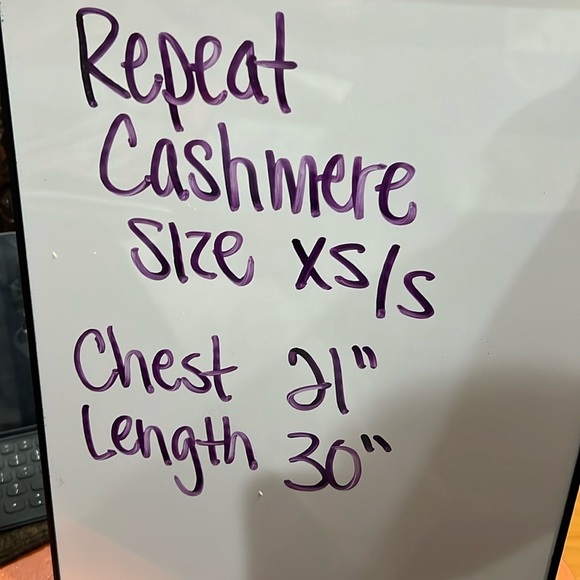 Repeat
Cashmere
Size XS/S
Chest 21"
Length 30"